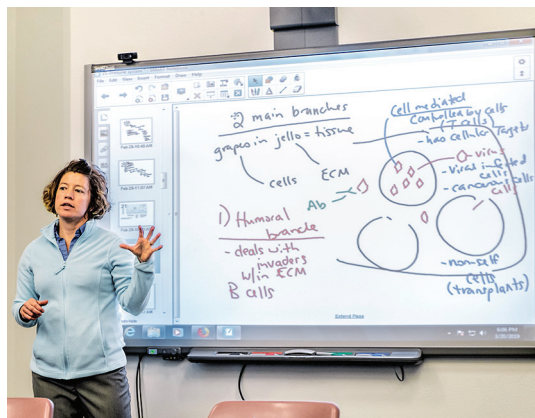 File Edit View Insert Format Draw Help
2 main branches
grapes in jello = tissue
cells
ECM
Ab
1) Humoral
branch
- deals with
invaders
w/in ECM
B cells
Cell mediated
controlled by cells
(T cells)
- has cellular targets
virus
- viral infected
cells
- cancerous cells
cells
- nonself
cells
(transplants)
Extend Page